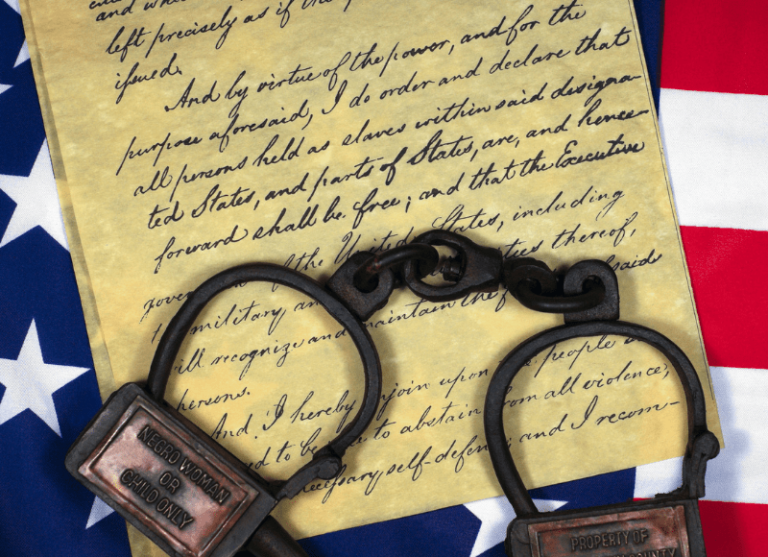 left precisely as if the
issued.
And by virtue of the power, and for the
purpose aforesaid, I do order and declare that
all persons held as slaves within said designa-
ted States, and parts of States, are, and hence-
forward shall be free; and that the Executive
of the United States, including
thereof,
military
will recognize and maintain the
persons.
And I hereby enjoin upon the people
to abstain from all violence,
necessary self-defence; and I recom-
NEGRO WOMAN
OR
CHILD ONLY
PROPERTY OF
COUNTY